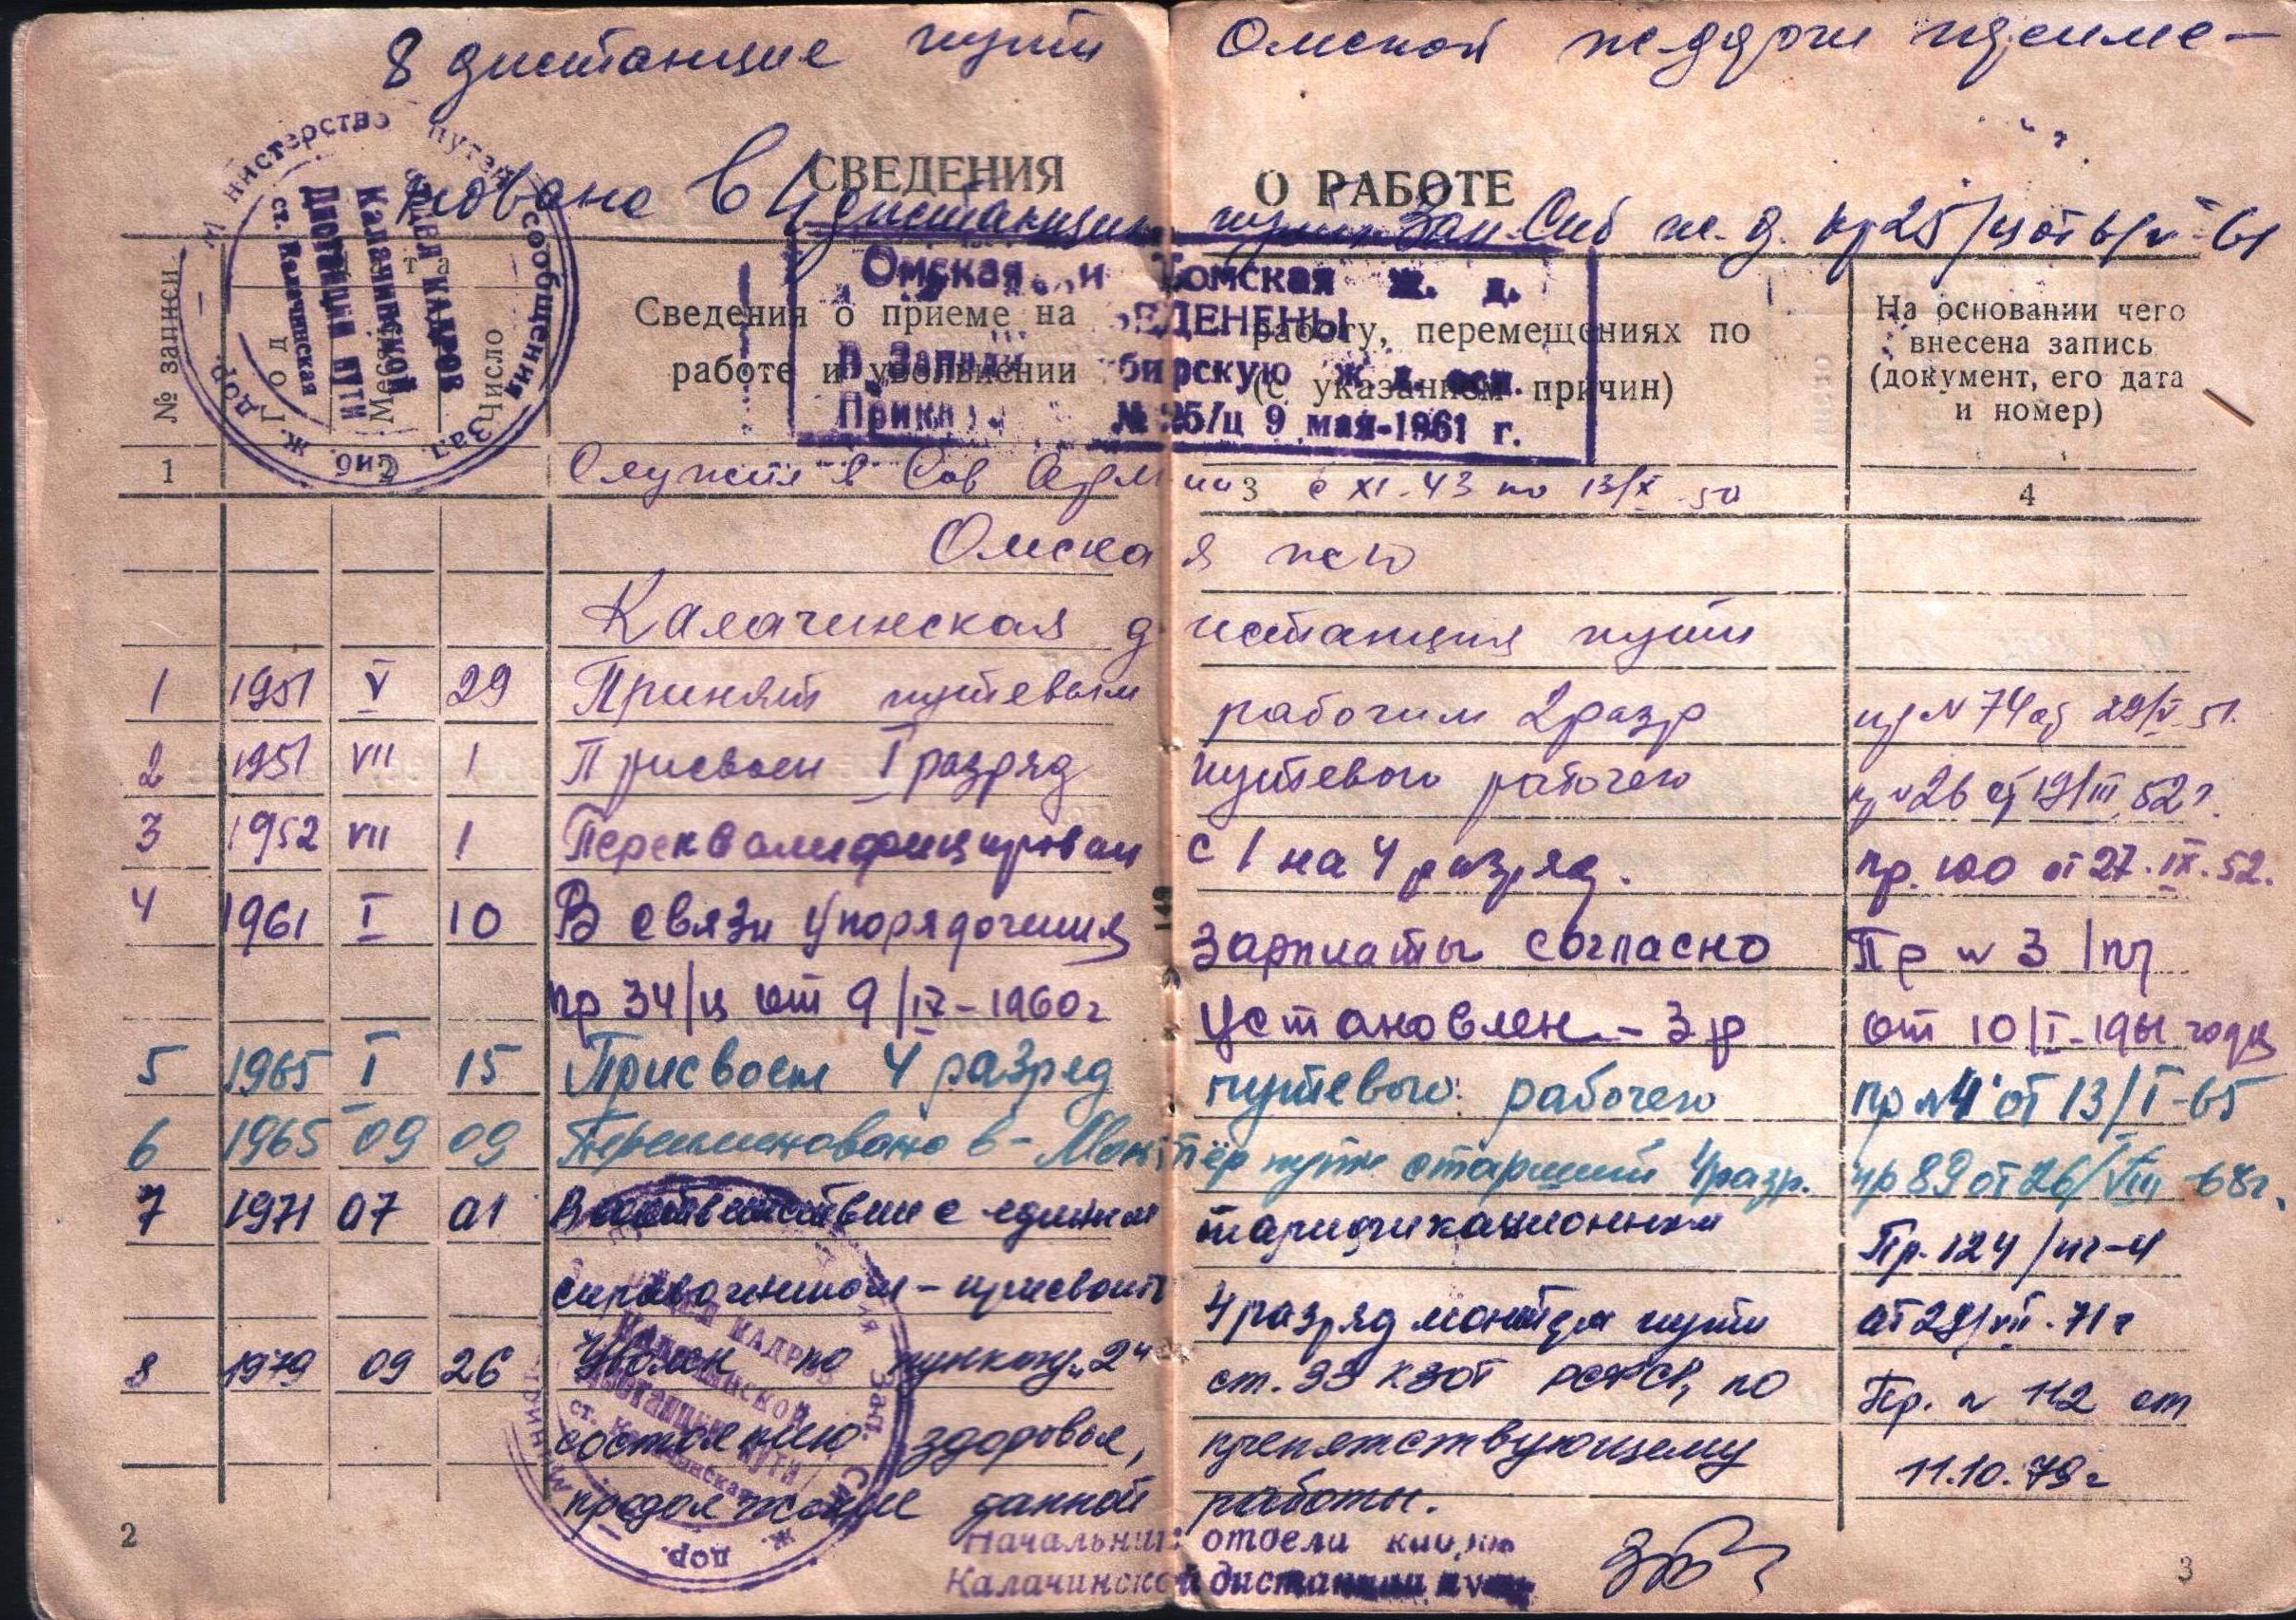 8 дистанцие пути Омской ж-д
СВЕДЕНИЯ О РАБОТЕ
нована в дистанцию пути Зап-Сиб ж.д. пр 25/ц от 6/V-61
Министерство путей сообщения
Зап. Сиб. ж. дор.
ОТДЕЛ КАДРОВ
Калачинской
Дистанции пути
ст. Калачинская
Омская и Томская ж. д.
ЕДЕНЕНЫ
В Западн бирскую ж. д. осн.
Приказ № 25/ц 9 мая-1961 г.
№ записи
Дата
Год
Месяц
Число
Сведения о приеме на работу, перемещениях по
работе и увольнении (с указанием причин)
На основании чего
внесена запись
(документ, его дата
и номер)
1 2 3 4
Служил в Сов Армии с XI-43 по 13/X 50
Омская
Калачинская дистанция пути
1 1951 V 29 Принят путевым рабочим 2 разр № 74 29/V 51.
2 1951 VII 1 Присвоен I разряд путевого рабочего № 26 от 19/III 52 г.
3 1952 VII 1 Переквалифицирован с 1 на 4 разряд. пр. 100 от 27.IX.52.
4 1961 I 10 В связи упорядочения зарплаты согласно Пр № 3/пч
пр 34/ц от 9/IV-1960 г установлен - 3 р от 10/I-1961 года
5 1965 I 15 Присвоен 4 разряд путевого рабочего пр № 4 от 13/I-65
6 1965 09 09 Переименовано в - Монтёр пути старший 4 разр. пр 89 от 26/VIII-68 г.
7 1971 07 01 В соответствии с единым тарификационным Пр. 124/пч-4
справочником - присвоить 4 разряд монтера пути от 29/VII-71 г
8 1979 09 26 Уволен по пункту „2“ ст. 33 КЗОТ РСФСР, по Пр. № 112 от
состоянию здоровья, препятствующему 11.10.79 г
продолжение данной работы.
ОТДЕЛ КАДРОВ
Калачинской
Дистанции пути
ст. Калачинская
Зап. Сиб. ж. дор.
Начальник отдела кадров
Калачинской дистанции пути
149
2 3